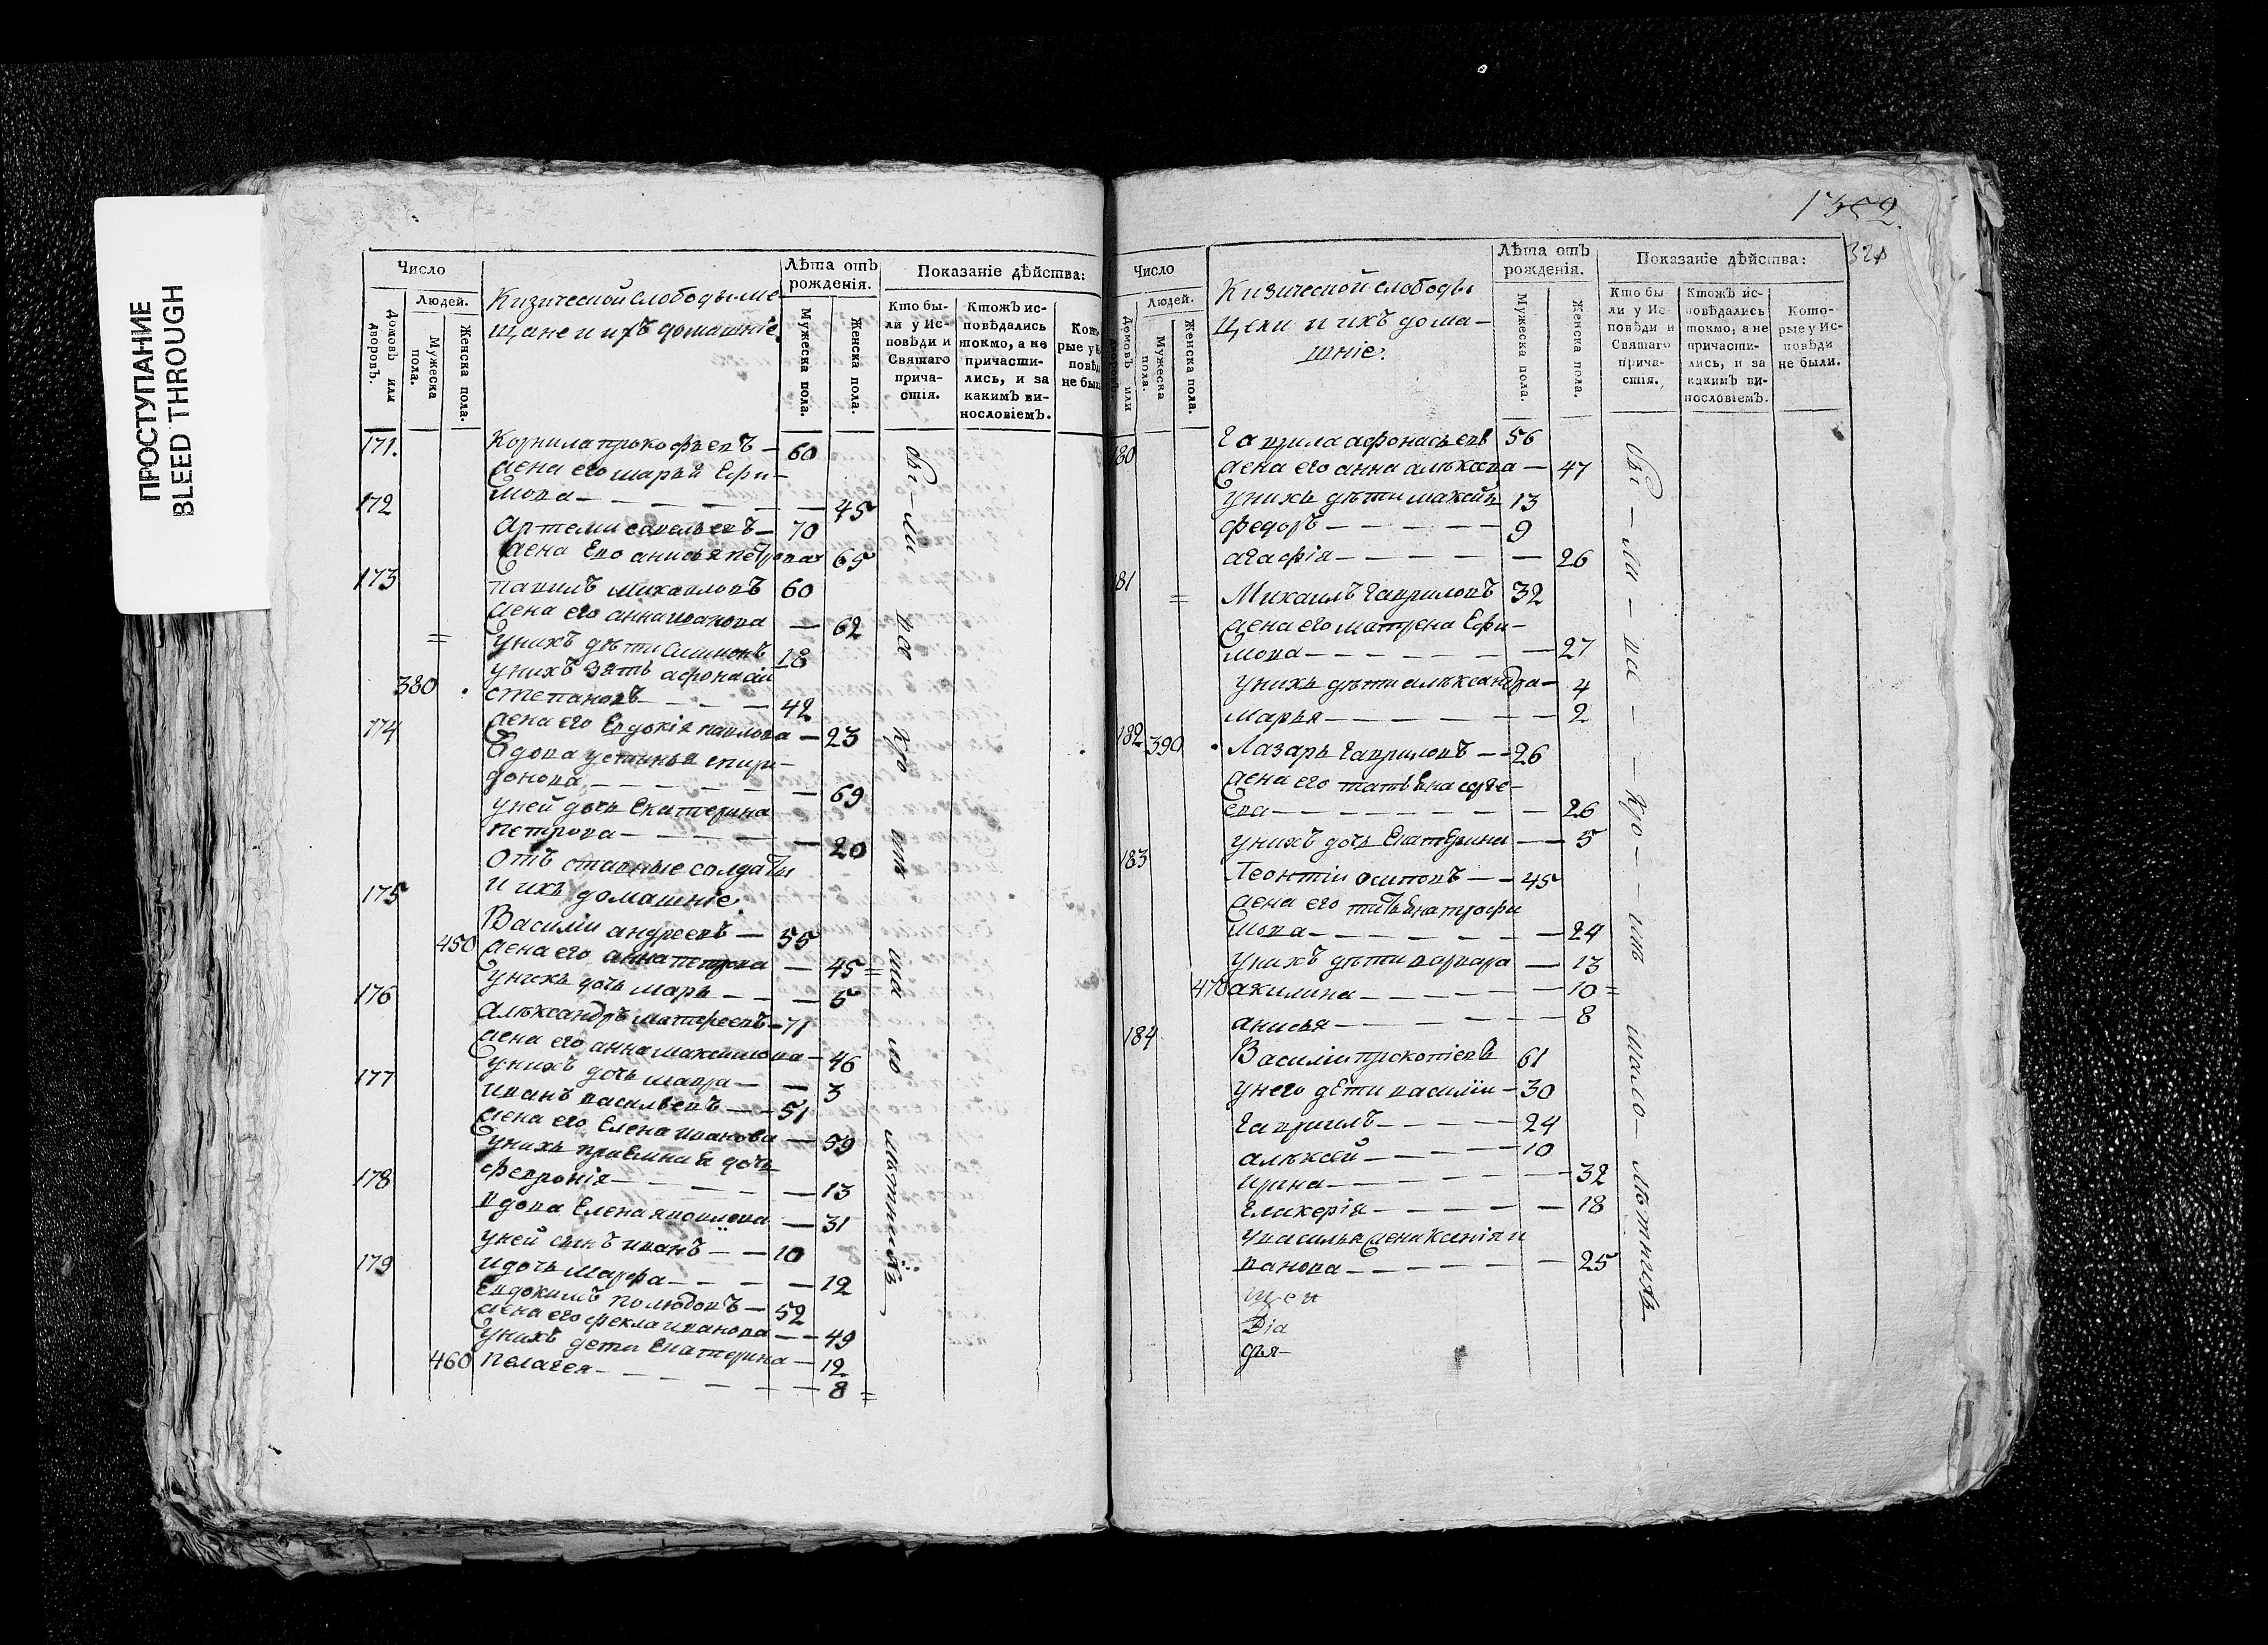 ПРОСТУПАНИЕ
BLEED THROUGH
Число
Людей.
Домовъ или дворовъ.
Мужеска пола.
Женска пола.
Кизической слободы ме-
щане и ихъ домашніе
Лѣта отъ рожденія.
Мужеска пола.
Женска пола.
Показаніе дѣйства:
Кто бы-
ли у Ис-
повѣди и
Святаго
прича-
стія.
Ктожъ ис-
повѣдались
токмо, а не
причасти-
лись, и за
какимъ ви-
нословіемъ.
171. Корнила прокофьевъ — 60
жена его марья Ефи-
мова — 45
172 Артеми савельевъ — 70
жена Его анисья петрова 65
173 павилъ михаиловъ 60
жена его анна иванова — 62
= у нихъ дѣти Симионъ 18
у нихъ зять афонасіи
380 степановъ — 42
жена его Евдокія павлова — 23
174 Вдова устинья спири-
донова — 69
у ней дочь Екатерина
петрова — 20
Отъ ставные солдаты
и ихъ домашніе
175 Василіи андреевъ — 55
450 жена его анна петрова — 45 =
у нихъ дочь марь — 5
176 Алѣксандръ матфеевъ — 71
жена его анна максимова — 46
у нихъ дочь мавра — 3
177 иванъ васильевъ — 51
жена его Елена иванова — 59
у нихъ праемная дочь
февронія — 13
178 вдова Елена яковлева — 31
у ней сынъ иванъ — 10
и дочь марфа — 12
179 Евдокимъ полюдовъ — 52
жена его фекла иванова — 49
у нихъ дети Екатерина — 12
460 пелагея — 8 =
бы - ли
1352
321
Число
Людей.
Домовъ или
Мужеска пола.
Женска пола.
Кизической слободы
щени и ихъ дома-
шніе.
Лѣта отъ
рожденія.
Мужеска пола.
Женска пола.
Показаніе дѣйства:
Кто бы
ли у Ис-
повѣди и
Святаго
прича-
стія.
Ктожъ ис-
повѣдались
токмо, а не
причасти-
лись, и за
какимъ ви-
нословіемъ.
Кото-
рые у Ис-
повѣди
не были.
180 Гаврила афонасьевъ 56
жена его анна алѣксѣва — 47
у нихъ дѣти максимъ 13
федоръ — 9
агафія — 26
181 = Михаилъ Гавриловъ 32
жена его матрена Ефи-
мова — 27
у нихъ дѣти алѣксандра — 4
марья — 2
182 390 Лазарь Гавриловъ — 26
жена его татьяна серге-
ева — 26
у нихъ дочь Екатерина — 5
183 Леонтіи осиповъ — 45
жена его татьяна трофи
мова — 24
у нихъ дѣти варвара — 13
470 акилина — 10 =
анисья — 8
184 Василіи прокопіевъ 61
у него дѣти василіи — 30
Гавриилъ — 24
алѣксей — 10
ирина — 32
Гликерія — 18
у василья жена Ксенія и
ванова — 25
щен
Діа
дья
бы - ли - вси - кро - мѣ - мало - лѣтнихъ